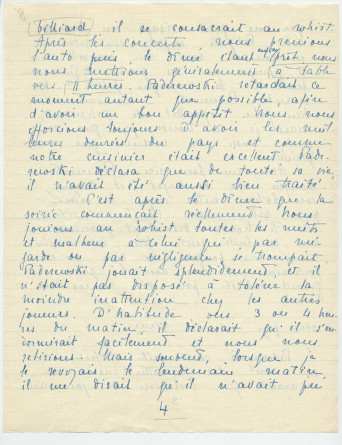 billiard, il se consacrait au whist.
Après les concerts, nous prenions
l'auto puis, le dîner étant enfin prêt nous
nous mettions généralement à table
vers 11 heures. Paderewski retardait ce
moment autant que possible, afin
d'avoir un bon appétit. Nous nous
efforcions toujours d'avoir les meil
leures denrées du pays et comme
notre cuisinier était excellent Pade-
rewski déclara que de toute sa vie
il n'avait été aussi bien traité.
C'est après le dîner que la
soirée commençait réellement. Nous
jouions au whist toutes les nuits
et malheur à celui qui par mé-
garde ou par négligence se trompait.
Paderewski jouait splendidement et il
n'était pas disposé à tolérer la
moindre inattention chez les autres
joueurs. D'habitude vers 3 ou 4 heu-
res du matin, il déclarait qu'il s'en-
dormirait facilement et nous nous
retirions. Mais souvent, lorsque je
le revoyais le lendemain matin,
il me disait qu'il n'avait pu
4